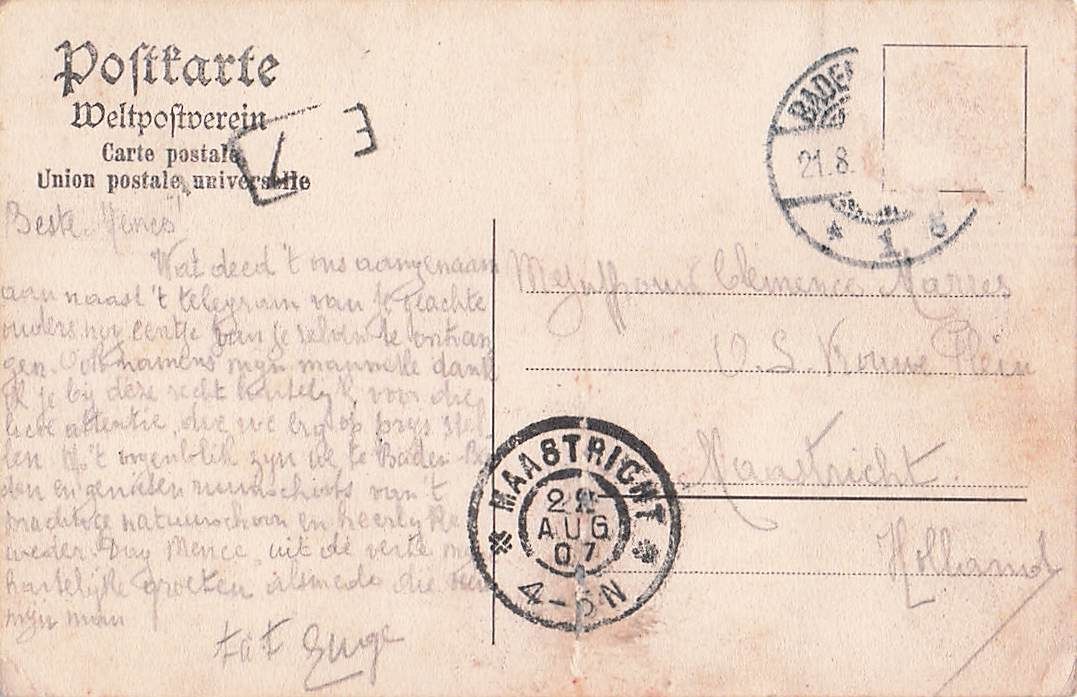 Postkarte
Weltpostverein
Carte postale
Union postale universelle
T
E
BADEN
21.8.
* 1 *
Beste
Wat deed 't ons aangenaam
aan naast 't telegram van je geachte
ouders nog eentje van je zelven te ontvan
gen. Ook namens mijn mannetje dank
ik je bij deze recht hartelijk voor die
lieve attentie, die we erg op prys stel-
len. Op 't oogenblik zyn we te Baden Ba
den en genieten van 't
prachtige natuurschoon en heerlyke
weder. Dag Mence, uit de verte
hartelijke groeten alsmede die van
mijn man
t. à t.
Mejuffrouw Clemence Marres
O. L. Vrouwe Plein
Maastricht
Holland
MAASTRICHT
22
AUG
07
4-5N